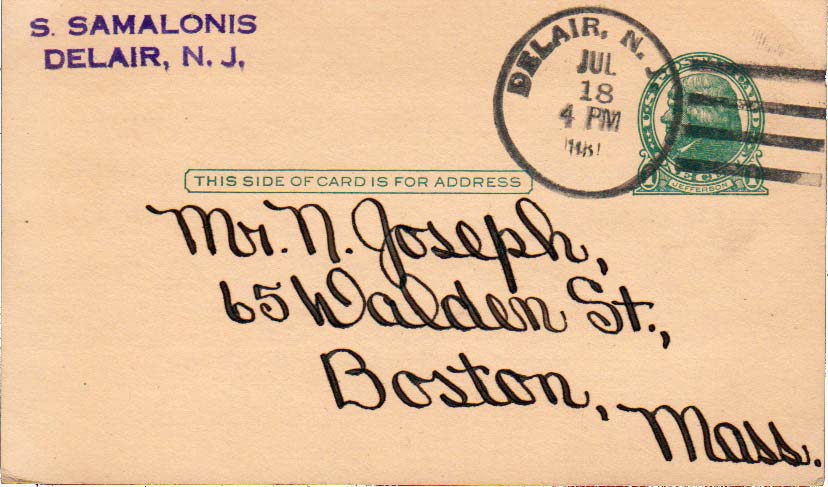 S. SAMALONIS
DELAIR, N. J.
DELAIR, N. J.
JUL
18
4 PM
U.S. POSTAL CARD
JEFFERSON
THIS SIDE OF CARD IS FOR ADDRESS
Mr. N. Joseph,
65 Walden St.,
Boston, Mass.